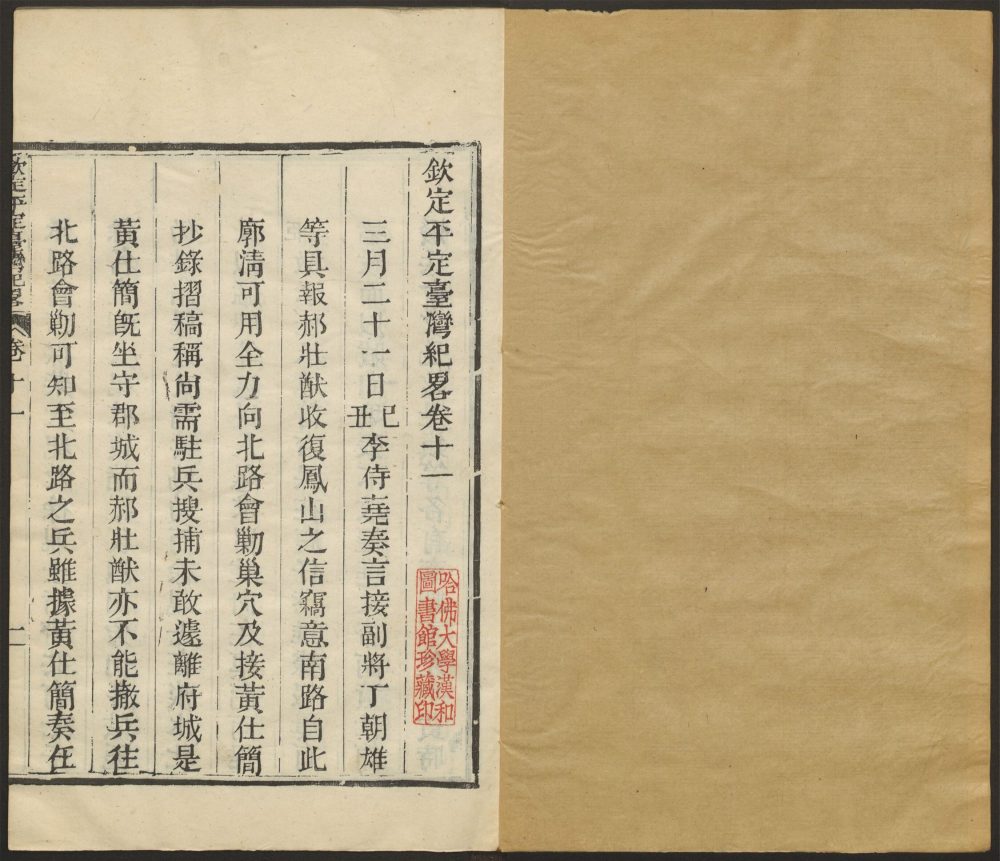 欽定平定臺灣紀畧卷十一
三月二十一日己丑李侍堯奏言接副將丁朝雄
等具報郝壯猷收復鳳山之信竊意南路自此
廓清可用全力向北路會勦巢穴及接黃仕簡
抄錄摺稿稱尚需駐兵搜捕未敢遽離府城是
黃仕簡旣坐守郡城而郝壯猷亦不能撤兵往
北路會勦可知至北路之兵雖據黃仕簡奏任
欽定平定臺灣紀畧 卷十一 一
哈佛大學漢和
圖書館珍藏印